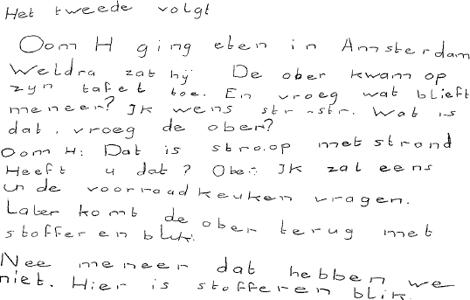 Het tweede volgt
Oom H ging eten in Amsterdam
Weldra zat hij De ober kwam op
zyn tafel toe. En vroeg wat blieft
meneer? Ik wens str-str. Wat is
dat, vroeg de ober?
Oom H: Dat is stroop met strond
Heeft u dat? Ober: Ik zal eens
in de voorraad keuken vragen.
Later komt de ober terug met
stoffer en blik.
Nee meneer dat hebben we
niet. Hier is stoffer en blik.